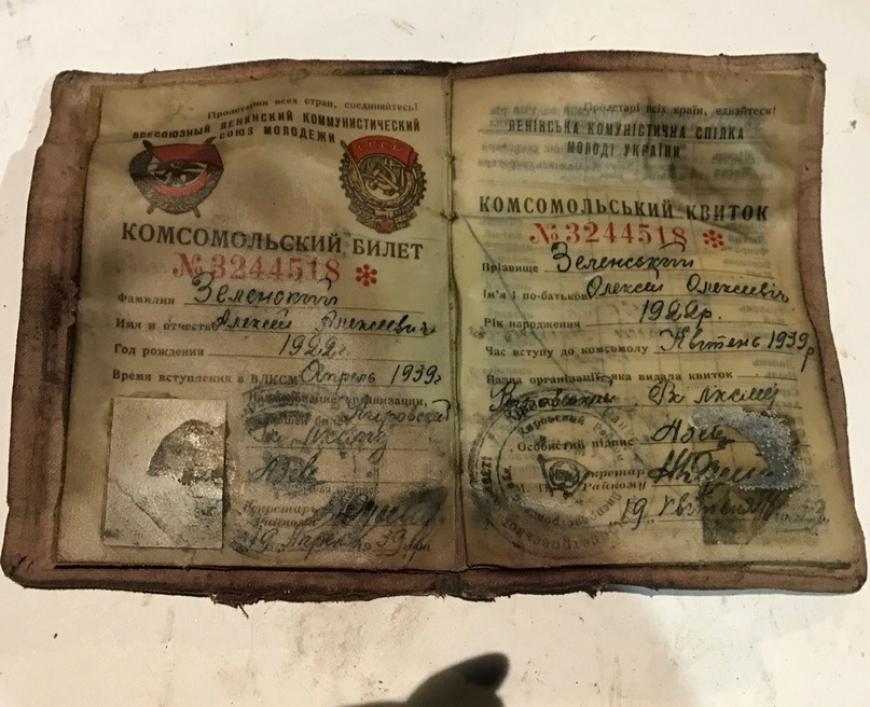 Пролетарии всех стран, соединяйтесь!
ВСЕСОЮЗНЫЙ ЛЕНИНСКИЙ КОММУНИСТИЧЕСКИЙ
СОЮЗ МОЛОДЕЖИ
СССР
КОМСОМОЛЬСКИЙ БИЛЕТ
№ 3244518 *
Фамилия Зеленский
Имя и отчество Алексей Алексеевич
Год рождения 1922г.
Время вступления в ВЛКСМ Апрель 1939г
Наименование организации,
Кировский
Рк ЛКСМУ
Секретарь
Райкома
19 Апреля 1939 г.
Пролетарі всіх країн, єднайтеся!
ЛЕНІНСЬКА КОМУНІСТИЧНА СПІЛКА
МОЛОДІ УКРАЇНИ
КОМСОМОЛЬСЬКИЙ КВИТОК
№ 3244518 *
Прізвище Зеленський
Ім'я і по-батькові Олексій Олексієвич
Рік народження 1922р.
Час вступу до комсомолу Квітень 1939р
Назва організації, яка видала квиток
Кіровський Рк ЛКСМУ
Особистий підпис
Секретар
Райкому
"19" Квітня